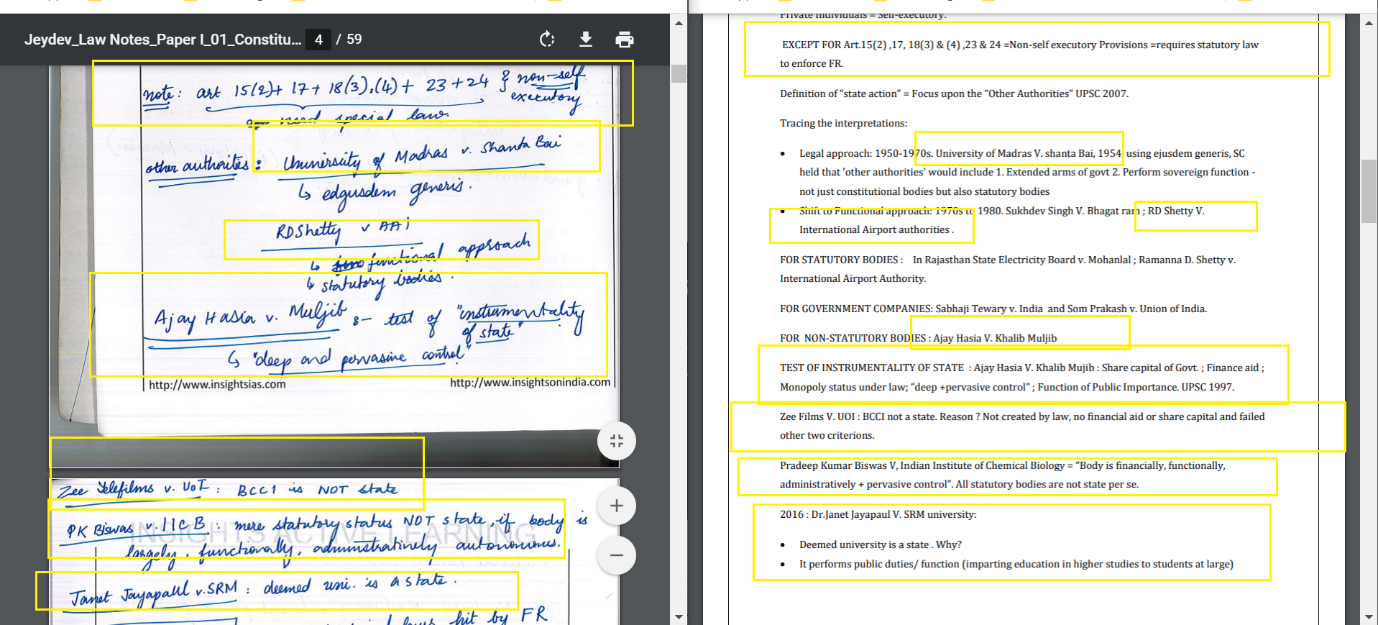 Jeydev_Law Notes_Paper I_01_Constitu... 4 / 59
note: art 15(2)+ 17+ 18(3),(4)+ 23+24 } non-self
executory
need special law
other authorites : University of Madras v. Shanta Bai
↳ edgusdem generis.
RDShetty v AAI
↳ functional approach
↳ statutory bodies.
Ajay Hasia v. Muljib :- test of "instrumentality
of state"
↳ "deep and pervasive control"
http://www.insightsias.com http://www.insightsonindia.com
Zee Telefilms v. UoI : BCCI is NOT state
PK Biswas v. IICB : mere statutory status NOT state, if body is
largely, functionally, administratively autonomous.
INSIGHTS ACTIVE LEARNING
Janet Jayapaul v.SRM : deemed uni. is a state.
laws hit by FR
Private individuals = Self-executory.
EXCEPT FOR Art.15(2) ,17, 18(3) & (4) ,23 & 24 =Non-self executory Provisions =requires statutory law
to enforce FR.
Definition of "state action" = Focus upon the "Other Authorities" UPSC 2007.
Tracing the interpretations:
• Legal approach: 1950-1970s. University of Madras V. shanta Bai, 1954 using ejusdem generis, SC
held that 'other authorities' would include 1. Extended arms of govt 2. Perform sovereign function -
not just constitutional bodies but also statutory bodies
• Shift to Functional approach: 1970s to 1980. Sukhdev Singh V. Bhagat ram ; RD Shetty V.
International Airport authorities .
FOR STATUTORY BODIES : In Rajasthan State Electricity Board v. Mohanlal ; Ramanna D. Shetty v.
International Airport Authority.
FOR GOVERNMENT COMPANIES: Sabhaji Tewary v. India and Som Prakash v. Union of India.
FOR NON-STATUTORY BODIES : Ajay Hasia V. Khalib Muljib
TEST OF INSTRUMENTALITY OF STATE : Ajay Hasia V. Khalib Mujib : Share capital of Govt. ; Finance aid ;
Monopoly status under law; "deep +pervasive control" ; Function of Public Importance. UPSC 1997.
Zee Films V. UOI : BCCI not a state. Reason ? Not created by law, no financial aid or share capital and failed
other two criterions.
Pradeep Kumar Biswas V, Indian Institute of Chemical Biology = "Body is financially, functionally,
administratively + pervasive control". All statutory bodies are not state per se.
2016 : Dr.Janet Jayapaul V. SRM university:
• Deemed university is a state . Why?
• It performs public duties/ function (imparting education in higher studies to students at large)